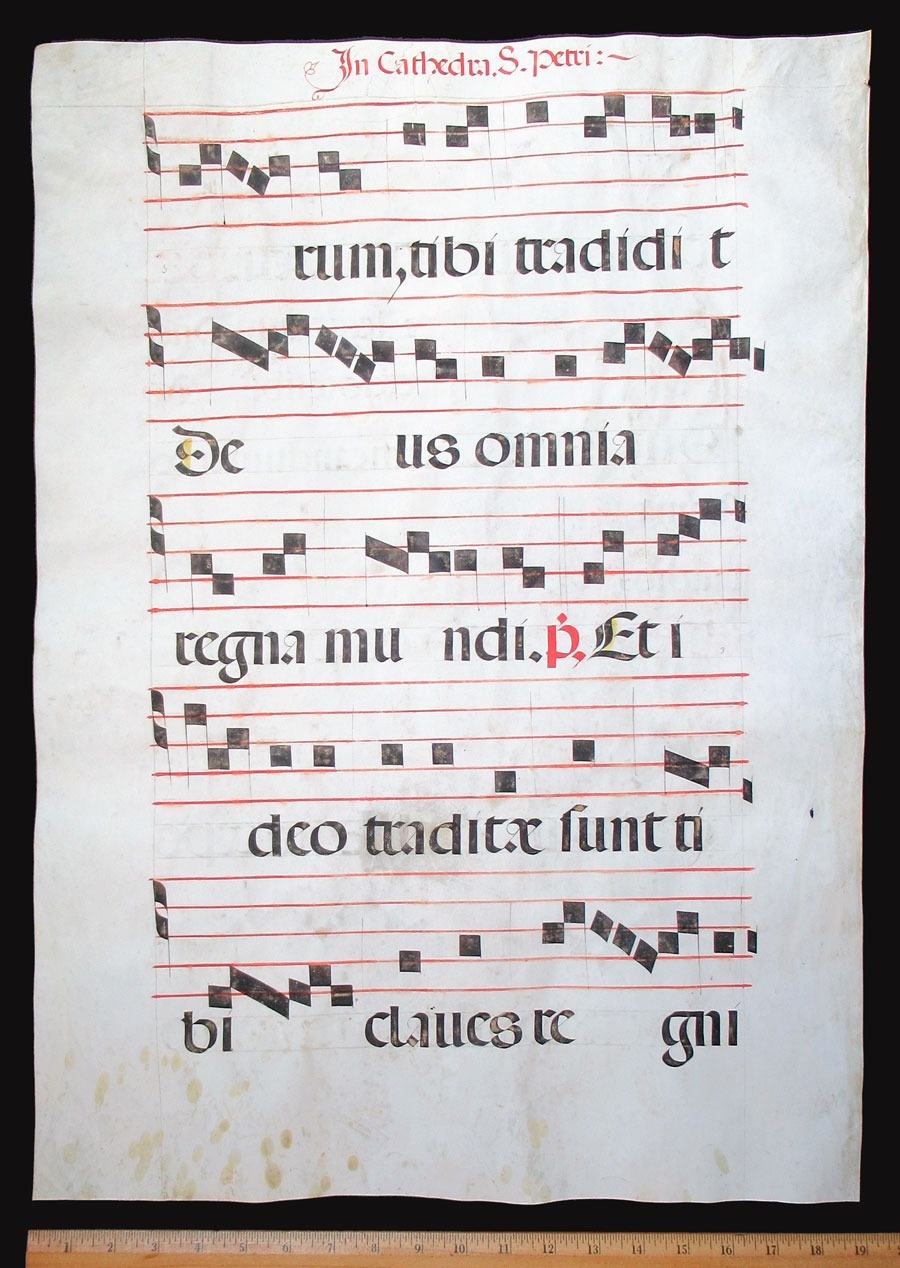 In Cathedra. S. Petri:~
rum, tibi tradidit
De us omnia
regna mu ndi. p. Et i
deo traditæ ſunt ti
bi claues re gni
1 2 3 4 5 6 7 8 9 10 11 12 13 14 15 16 17 18 19